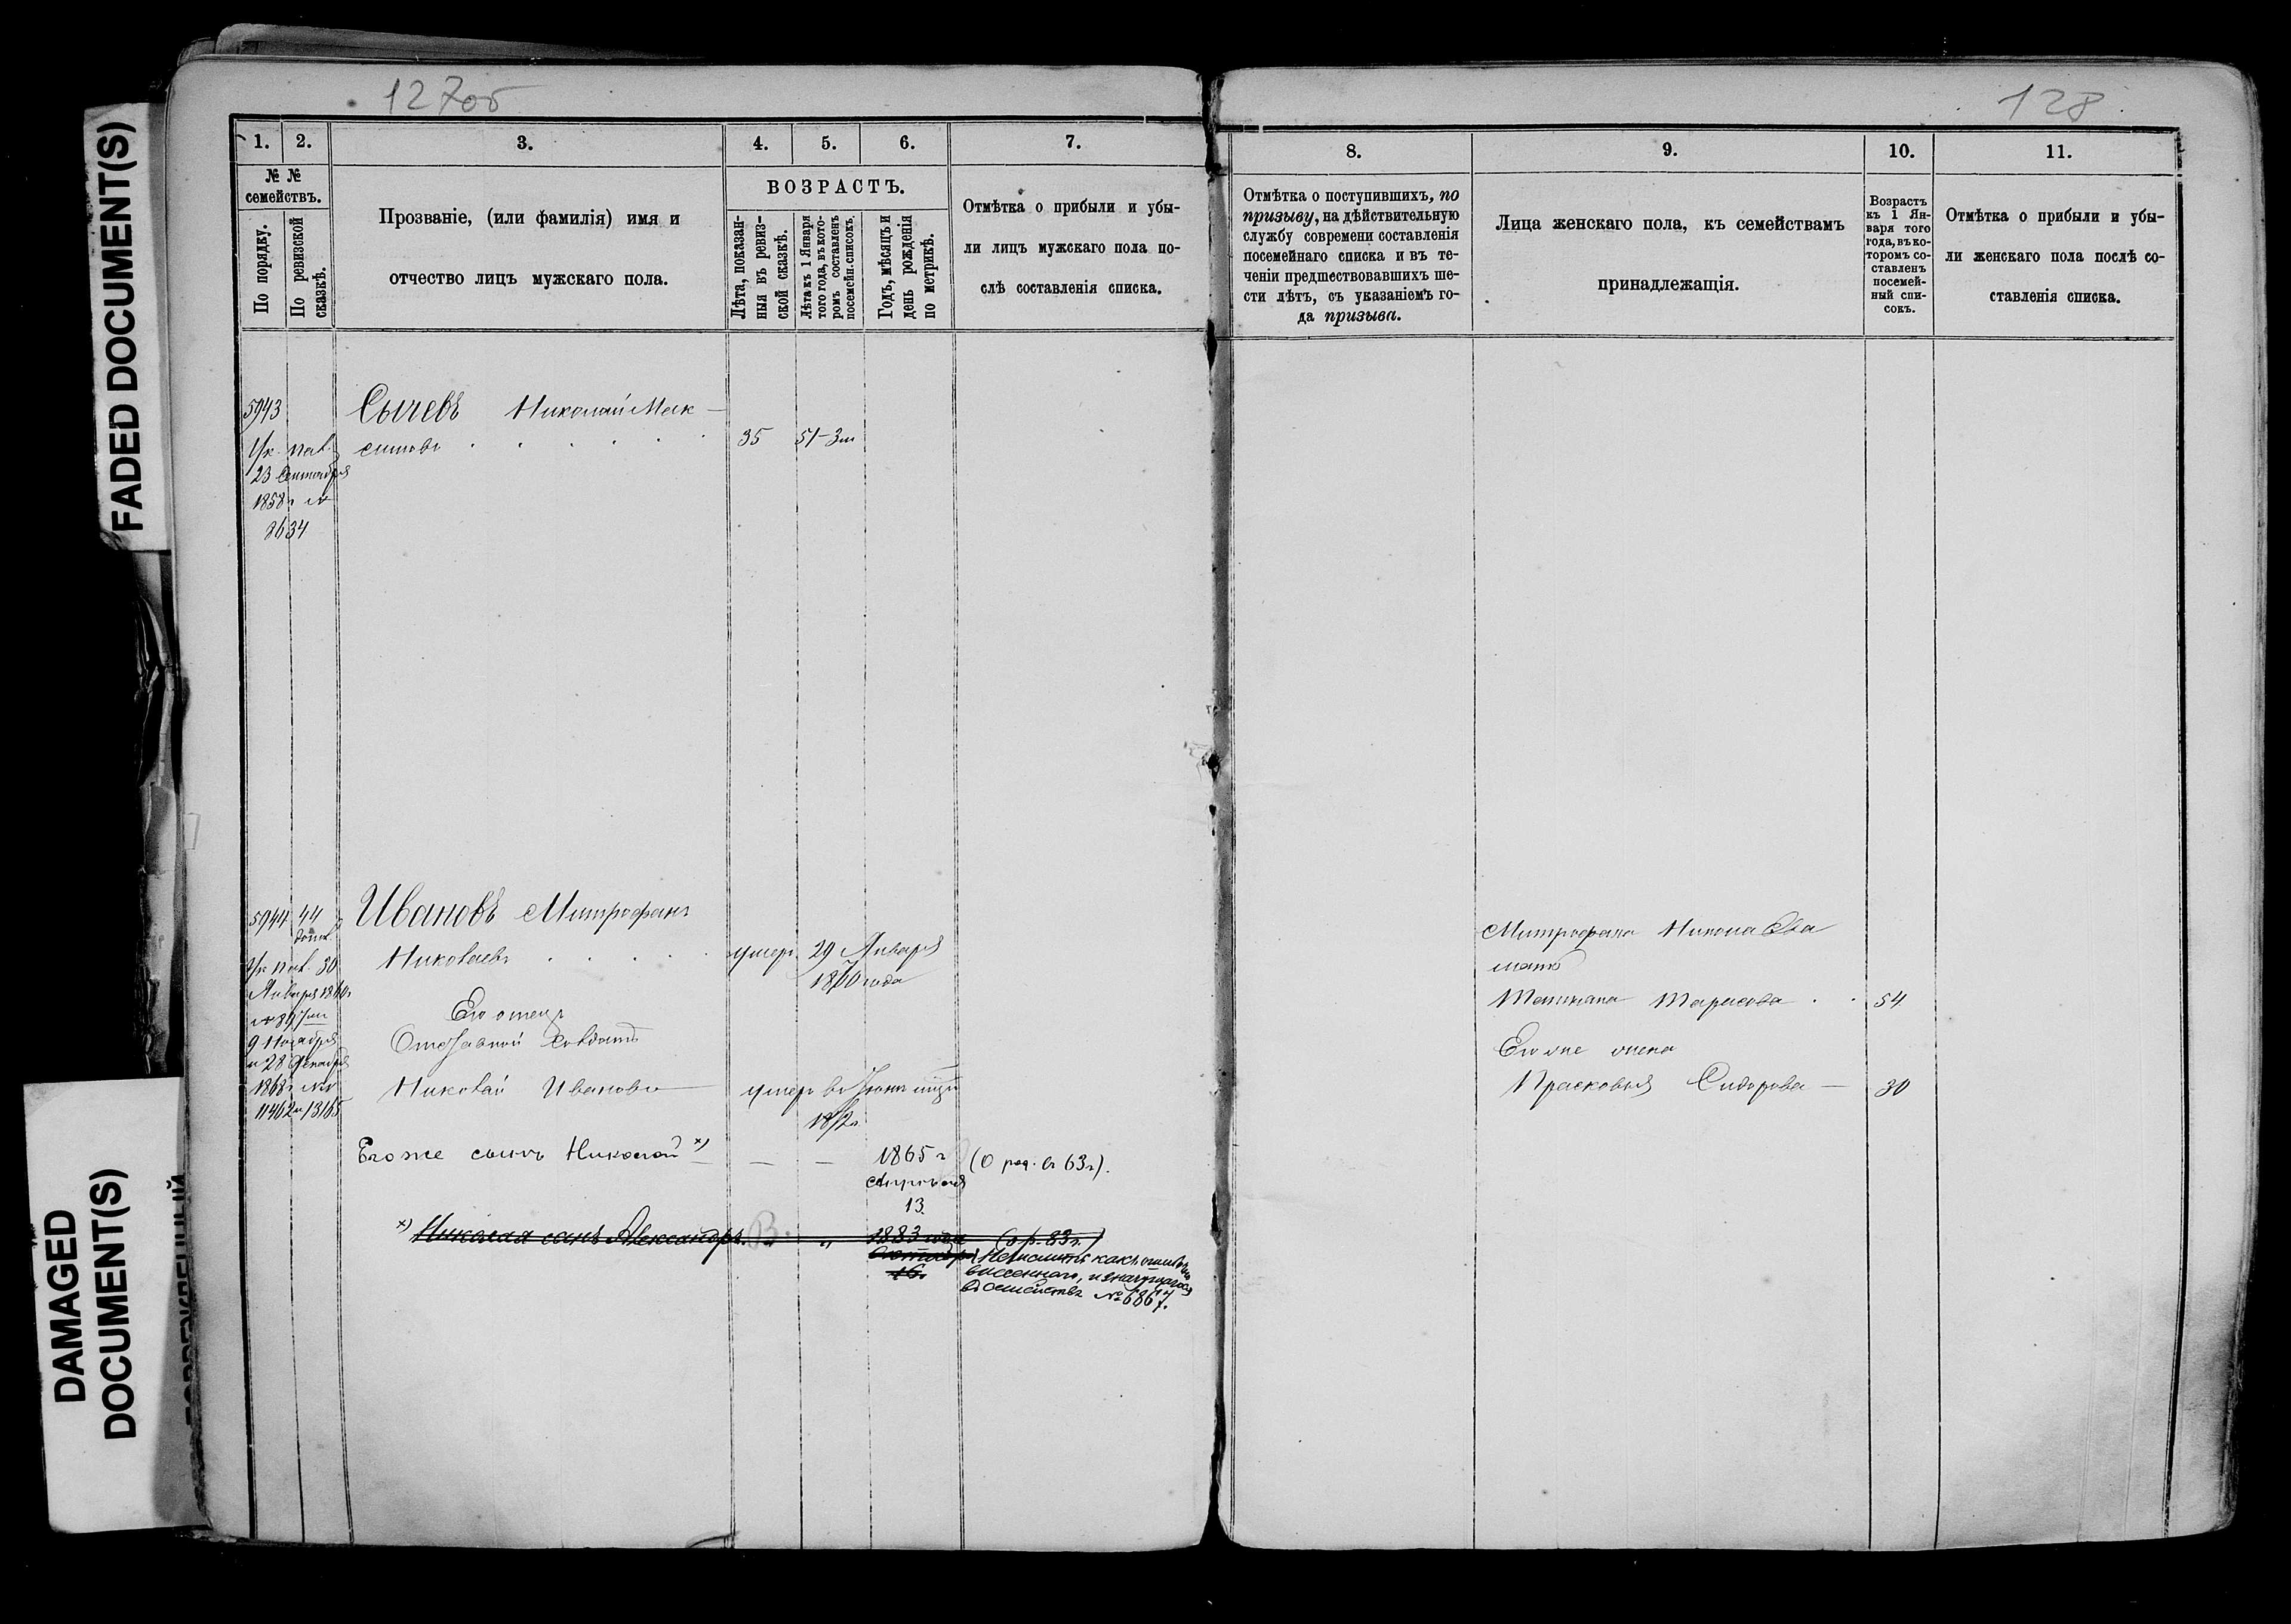 FADED DOCUMENT(S)
DAMAGED
DOCUMENT(S)
127об
1. 2. 3. 4. 5. 6. 7.
№ №
семействъ.
По порядку.
По ревизской
сказкѣ.
Прозваніе, (или фамилія) имя и
отчество лицъ мужскаго пола.
ВОЗРАСТЪ.
Лѣта, показан-
ныя въ ревиз-
ской сказкѣ.
Лѣта къ 1 Января
того года, въ кото-
ромъ составленъ
посемейн. списокъ.
Годъ, мѣсяцъ и
день рожденія
по метрикѣ.
Отмѣтка о прибыли и убы-
ли лицъ мужскаго пола по-
слѣ составленія списка.
5943
Сычевъ Николай Мак-
симовъ 35 51-3м
Ук. пал.
23 Сентября
1858г №
2634
5944 44
Ивановъ Митрофанъ
Николаевъ умеръ 29 Января
1870 года
Ук. пал. 30
Января
9 Ноября
и 28 Декабря
1868г №№
11462 и 13165
Его отецъ
Отставной солдатъ
Николай Ивановъ умеръ въ Іюнѣ мцѣ
1872г
Его же сынъ Николай х) — — 1865 г (О род. въ 63г).
Апрѣля
13.
х) Николая сынъ Александръ. „ „ 1883 года (о р. 83г.)
Октября
16.
Не числить какъ ошибочно
внесеннаго, и значущагося
въ семействѣ № 6867.
128
8. 9. 10. 11.
Отмѣтка о поступившихъ, по
призыву, на дѣйствительную
службу современи составленія
посемейнаго списка и въ те-
ченіи предшествовавшихъ ше-
сти лѣтъ, съ указаніемъ го-
да призыва.
Лица женскаго пола, къ семействамъ
принадлежащія.
Возрастъ
къ 1 Ян-
варя того
года, въ ко-
торомъ со-
ставленъ
посемей-
ный спи-
сокъ.
Отмѣтка о прибыли и убы-
ли женскаго пола послѣ со-
ставленія списка.
Митрофана Николаева
мать
Татьяна Тарасова 54
Его же жена
Прасковья Сидорова — 30